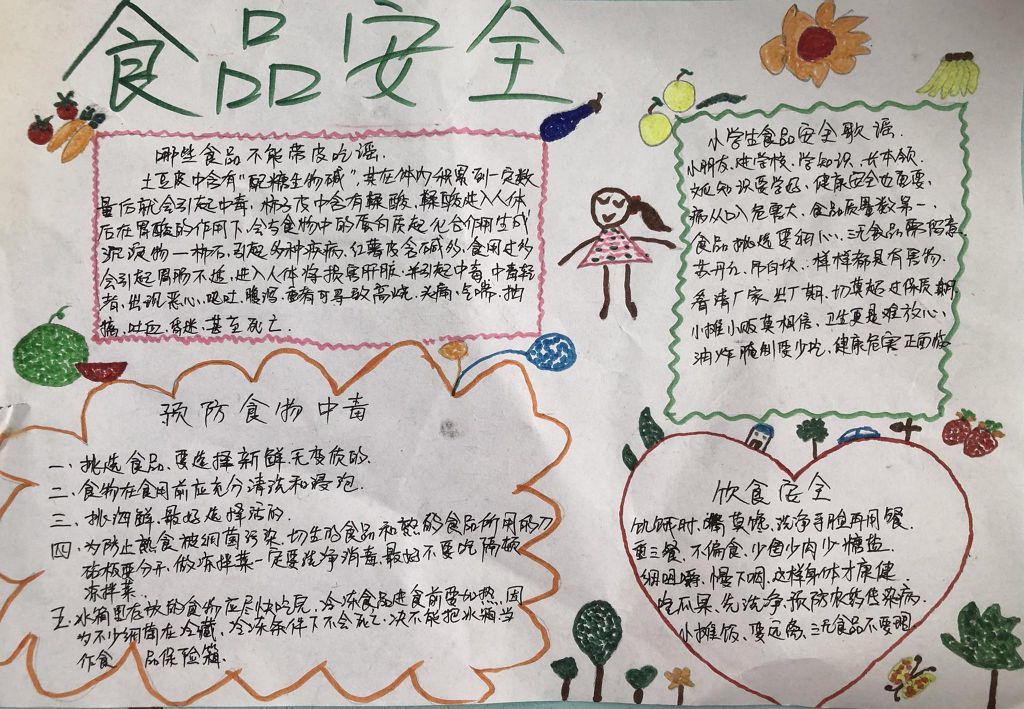 食品安全
哪些食品不能带皮吃谣.
土豆皮中含有"配糖生物碱",其在体内积累到一定数
量后就会引起中毒.柿子皮中含有鞣酸,鞣酸进入人体
后在胃酸的作用下,会与食物中的蛋白质起化合作用生成
沉淀物一柿石,引起多种疾病,红薯皮含碱多,食用过多
会引起胃肠不适,进入人体将损害肝脏.并引起中毒,中毒轻
者,出现恶心,呕吐,腹泻,重者可导致高烧.头痛,气喘,抽
搐,吐血,昏迷,甚至死亡.
预防食物中毒
一、挑选食品、要选择新鲜、无变质的.
二、食物在食用前应充分清洗和浸泡.
三、挑海鲜、最好选择活的.
四、为防止熟食被细菌污染、切生的食品和熟的食品所用的刀
砧板要分开,做凉拌菜一定要洗净消毒,最好不要吃隔顿
凉拌菜.
五、冰箱里存放的食物应尽快吃完,冷冻食品进食前要加热,因
为不少细菌在冷藏、冷冻条件下不会死亡、决不能把冰箱当
作食品保险箱.
小学生食品安全歌谣.
小朋友,进学校,学知识,长本领,
文化知识要学好,健康安全也重要,
病从口入危害大,食品质量数第一,
食品挑选要细心,三无食品
苏丹红,吊白块..样样都具有害物.
看清厂家出厂期,切莫超过保质期
小摊小贩莫相信,卫生更是难放心,
油炸腌制要少吃,健康危害正面临
饮食安全
饥饿时,嘴莫馋,洗净手脸再用餐
重三餐,不偏食,少卤少肉少糖盐
细咀嚼,慢下咽,这样身体才康健.
吃瓜果,先洗净,预防农药传染病,
小摊饭,要远离,三无食品不要理